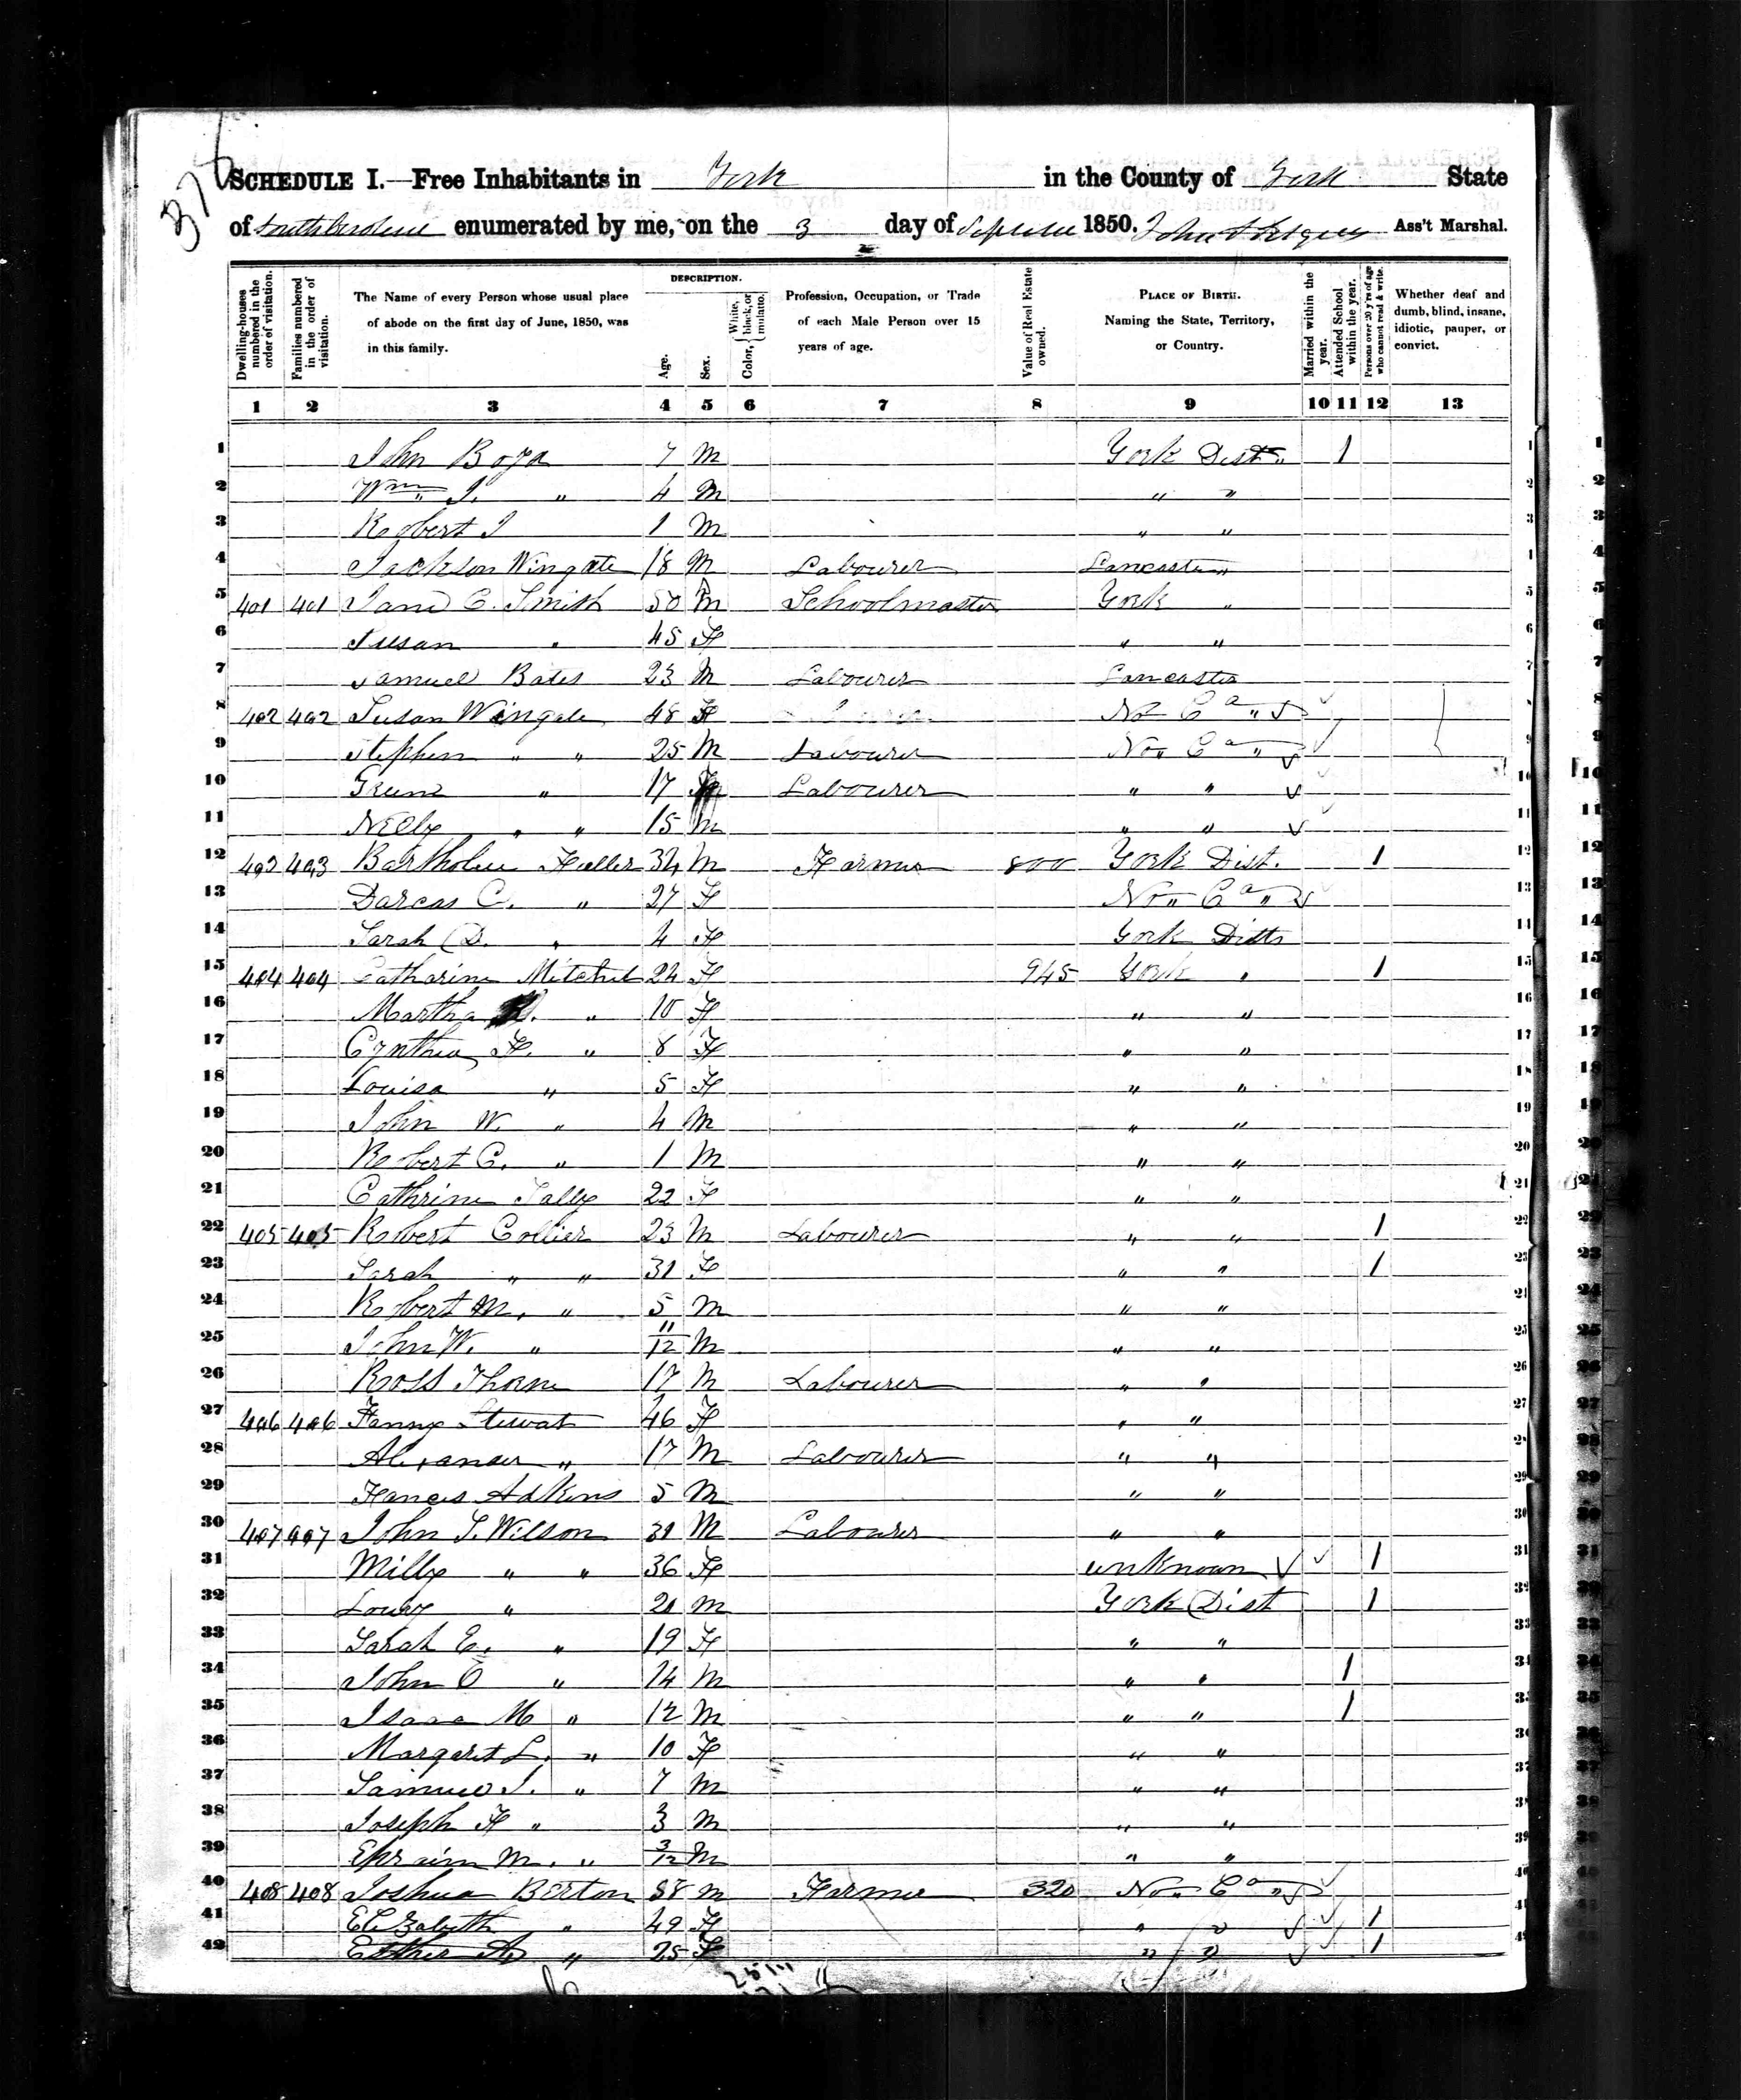 SCHEDULE I.—Free Inhabitants in York in the County of York State
of South Carolina enumerated by me, on the 3 day of September 1850. John Ass't Marshal.
Dwelling-houses numbered in the order of visitation.
Families numbered in the order of visitation.
The Name of every Person whose usual place of abode on the first day of June, 1850, was in this family.
DESCRIPTION.
Age.
Sex.
Color, White, black, or mulatto.
Profession, Occupation, or Trade of each Male Person over 15 years of age.
Value of Real Estate owned.
PLACE OF BIRTH. Naming the State, Territory, or Country.
Married within the year.
Attended School within the year.
Persons over 20 y'rs of age who cannot read & write.
Whether deaf and dumb, blind, insane, idiotic, pauper, or convict.
1 2 3 4 5 6 7 8 9 10 11 12 13
1 John Boyd 7 M York Dist. 1 1
2 Wm J. " 4 M " " 2
3 Robert J 1 M " " 3
4 Jackson Wingate 18 M Labourer Lancaster " 4
5 401 401 C. Smith 50 M Schoolmaster York " 5
6 Susan " 45 F " " 6
7 Samuel Bates 23 M Labourer Lancaster 7
8 402 402 Susan Wingate 48 F No Ca " 8
9 Stephen " " 25 M Labourer No Ca " 9
10 " 17 Labourer " " 10
11 Nelly " " 15 M " " 11
12 403 403 Bartholew Fuller 34 M Farmer 800 York Dist. 1 12
13 Darcas C. " 27 F No Ca " 13
14 Sarah D. " 4 F York Distr 14
15 404 404 Catharine Mitchel 24 F 945 York " 1 15
16 Martha " 10 F " " 16
17 Cynthia F. " 8 F " " 17
18 Louisa " 5 F " " 18
19 John W. " 4 M " " 19
20 Robert C. " 1 M " " 20
21 Cathrine Tally 22 F " " 21
22 405 405 Robert Collier 23 M Labourer " " 1 22
23 Sarah " " 31 F " " 1 23
24 Robert M. " 5 M " " 24
25 John W. " 11/12 M " " 25
26 Ross Thorn 17 M Labourer " " 26
27 406 406 Fanny Stewat 46 F " " 27
28 Alexander " 17 M Labourer " " 28
29 Frances Adkins 5 M " " 29
30 407 407 John S. Wilson 31 M Labourer " " 30
31 Milly " " 36 F unknown 1 31
32 Lowry " 21 M York Dist 1 32
33 Sarah E. " 19 F " " 33
34 John O " 14 M " " 1 34
35 Isaac M " 12 M " " 1 35
36 Margaret L. " 10 F " " 36
37 Samuel J. " 7 M " " 37
38 Joseph F " 3 M " " 38
39 Ephraim M. " 3/12 M " " 39
40 408 408 Joshua Berton 58 M Farmer 320 No Ca " 40
41 Elizabeth " 49 F " " 1 41
42 Esther A. " 25 F " " 1 42